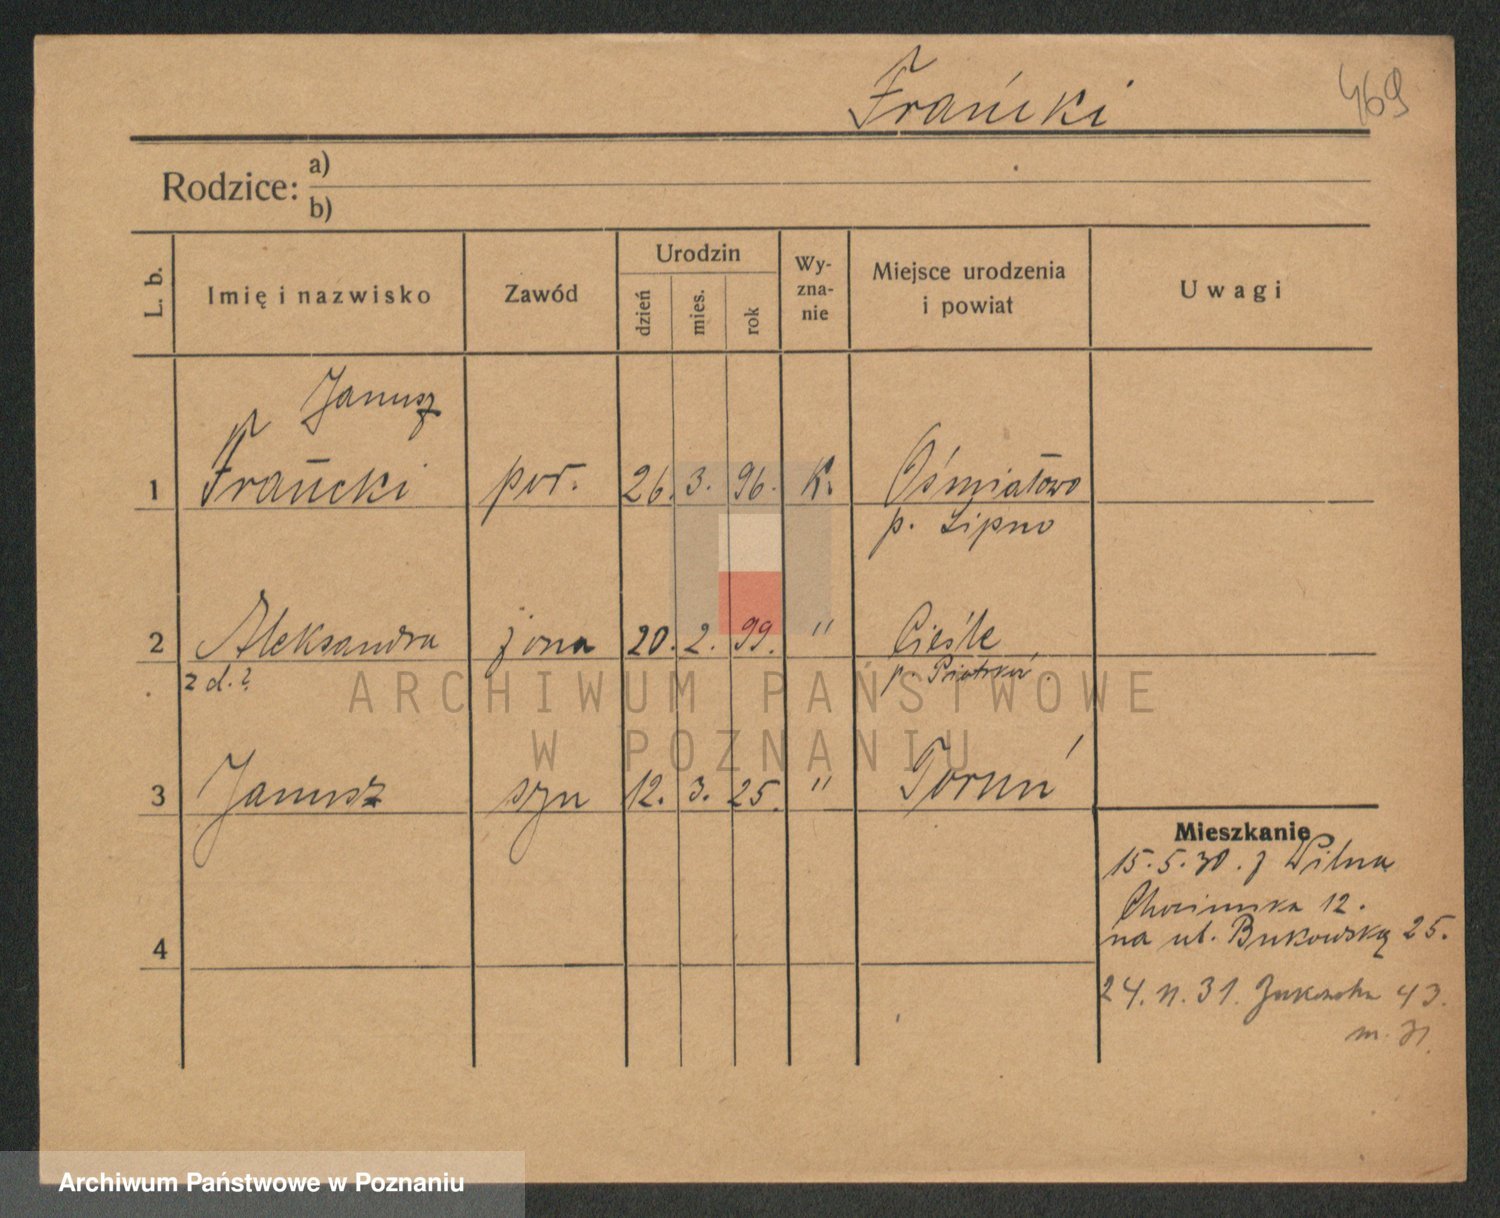 Frański
469
Rodzice: a)
b)
L. b.
Imię i nazwisko
Zawód
Urodzin
dzień
mies.
rok
Wy-
zna-
nie
Miejsce urodzenia
i powiat
Uwagi
Janusz
1 Frański por. 26. 3. 96. K. Ośmiałowo
p. Lipno
2 Aleksandra żona 20. 2. 99. " Cieśle
z d. ?
p.
ARCHIWUM PAŃSTWOWE
W POZNANIU
3 Janusz syn 12. 3. 25. " Toruń
Mieszkanie
15. 5. 30. z Wilna
Chocimska 12.
na ul. Bukowską 25.
4
24. 11. 31. 43.
m.
Archiwum Państwowe w Poznaniu